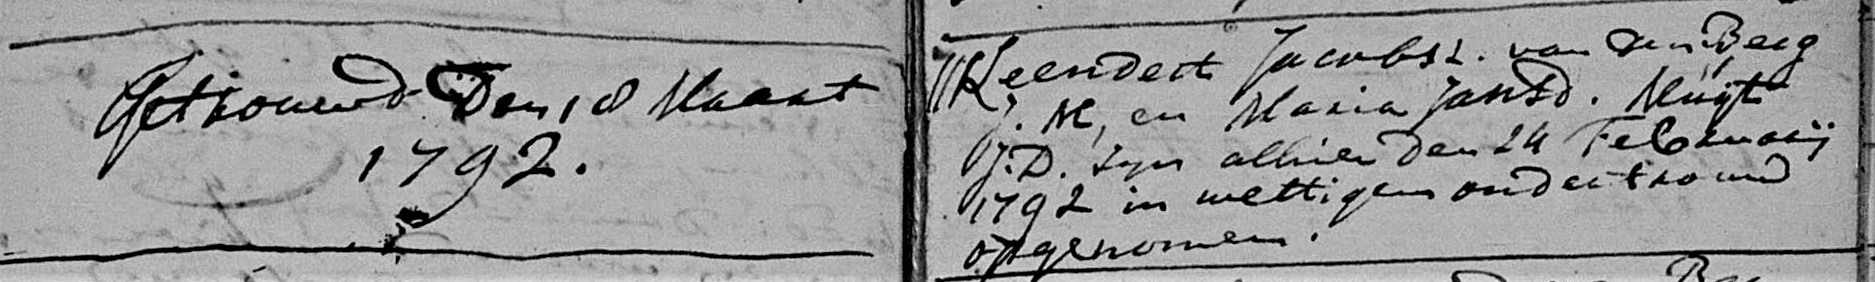 Getrouwd Den 18 Maart
1792.
Leendert Jacobsz. van den Berg
J. M, en Maria Jansd. Kluijt
J. D. zyn alhier den 24 Februarij
1792 in wettigen ondertrouwd
opgenomen.